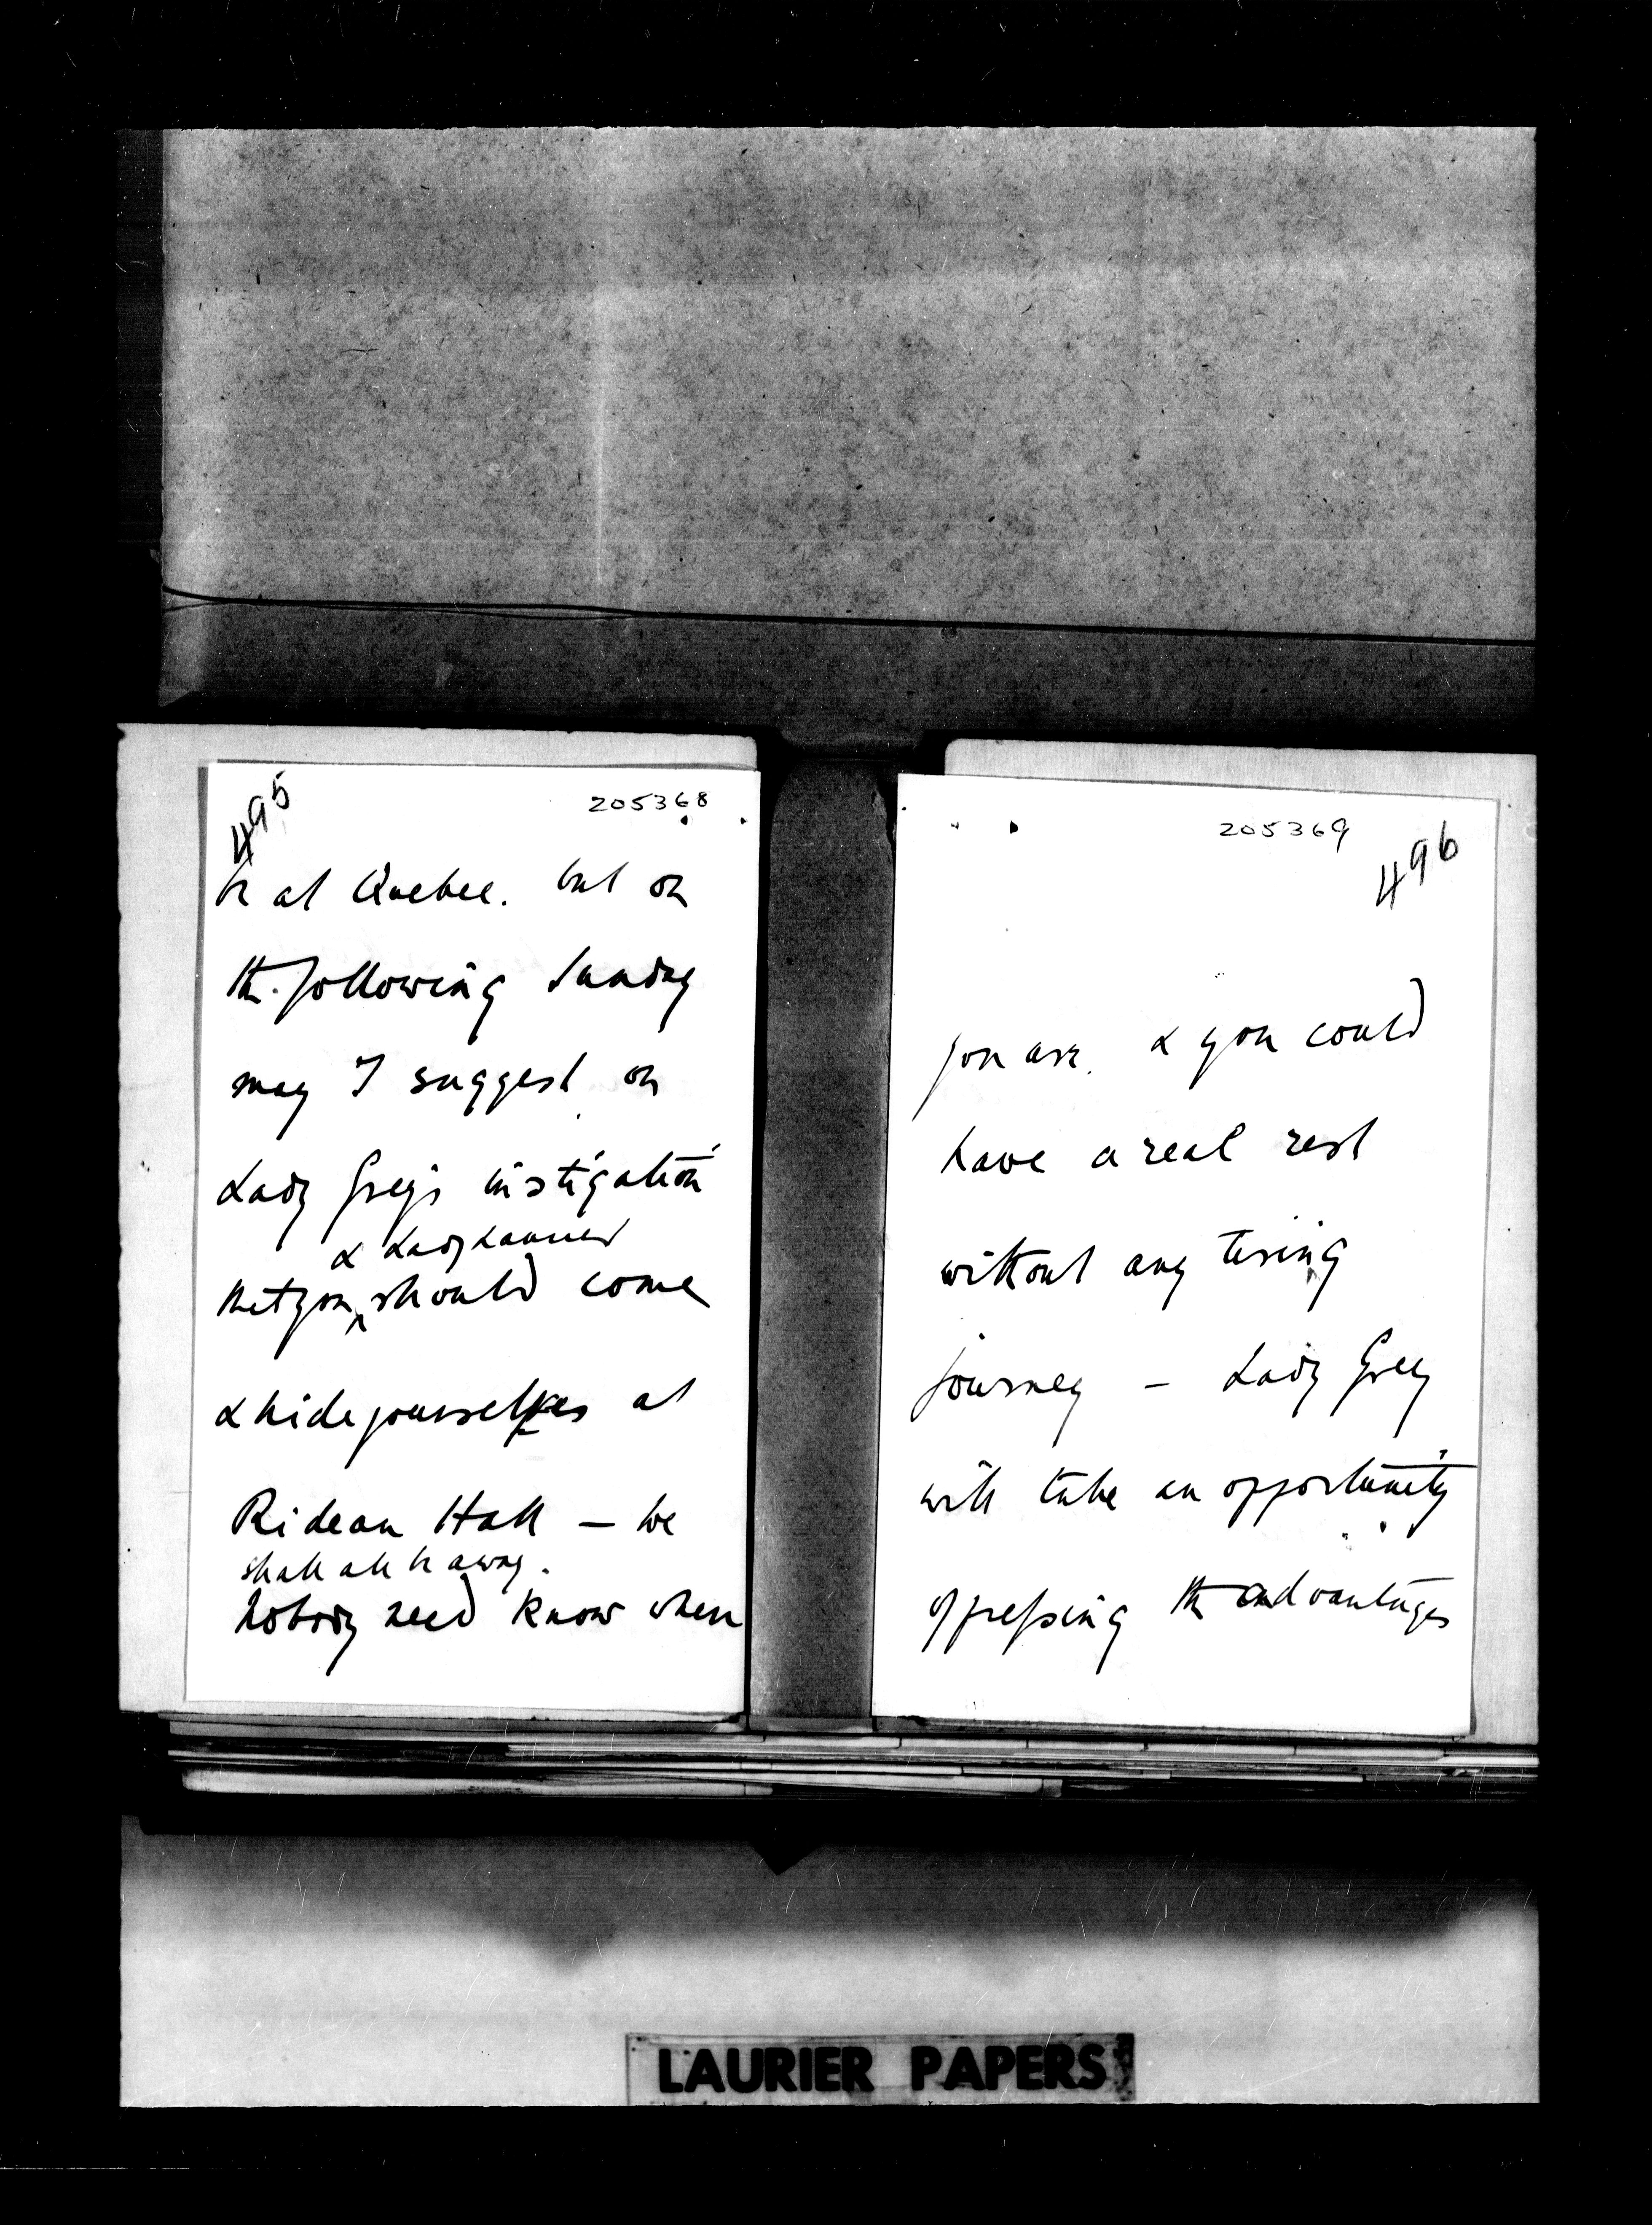 495
205368
be at Quebec. but on
the following Sunday
may I suggest on
Lady Grey's instigation
& Lady Laurier
that you ^ should come
& hide yourselves at
Rideau Hall – We
shall all be away.
Nobody need know where
205369
496
you are. & you could
have a real rest
without any tiring
journey – Lady Grey
will take an opportunity
of pressing the advantages
LAURIER PAPERS